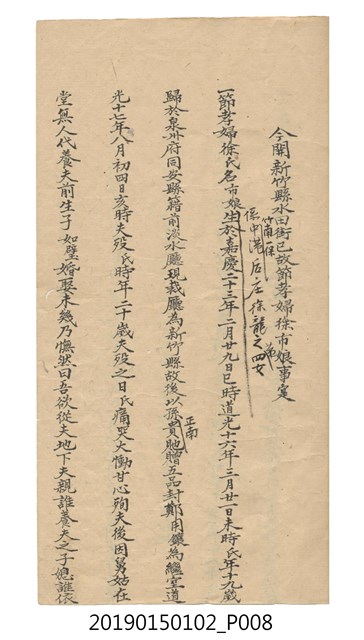 今開新竹縣水田街已故節孝婦徐市娘事寔
竹南一保
係中港后庄徐龍之四女
一節孝婦徐氏名市娘生於嘉慶二十三年二月廿九日巳時道光十六年三月廿一日未時氏年十九歲
歸於泉州府同安縣籍前淡水廳現裁廳為新竹縣故後以孫貢貤贈五品封鄭用鑲為繼室道
正南
光十七年八月初四日亥時夫歿氏時年二十歲夫歿之日氏痛哭大慟甘心殉夫後因舅姑在
堂無人代養夫前生子如璧婚娶未幾乃憮然曰吾欲從夫地下夫親誰養夫之子媳誰依
20190150102_P008